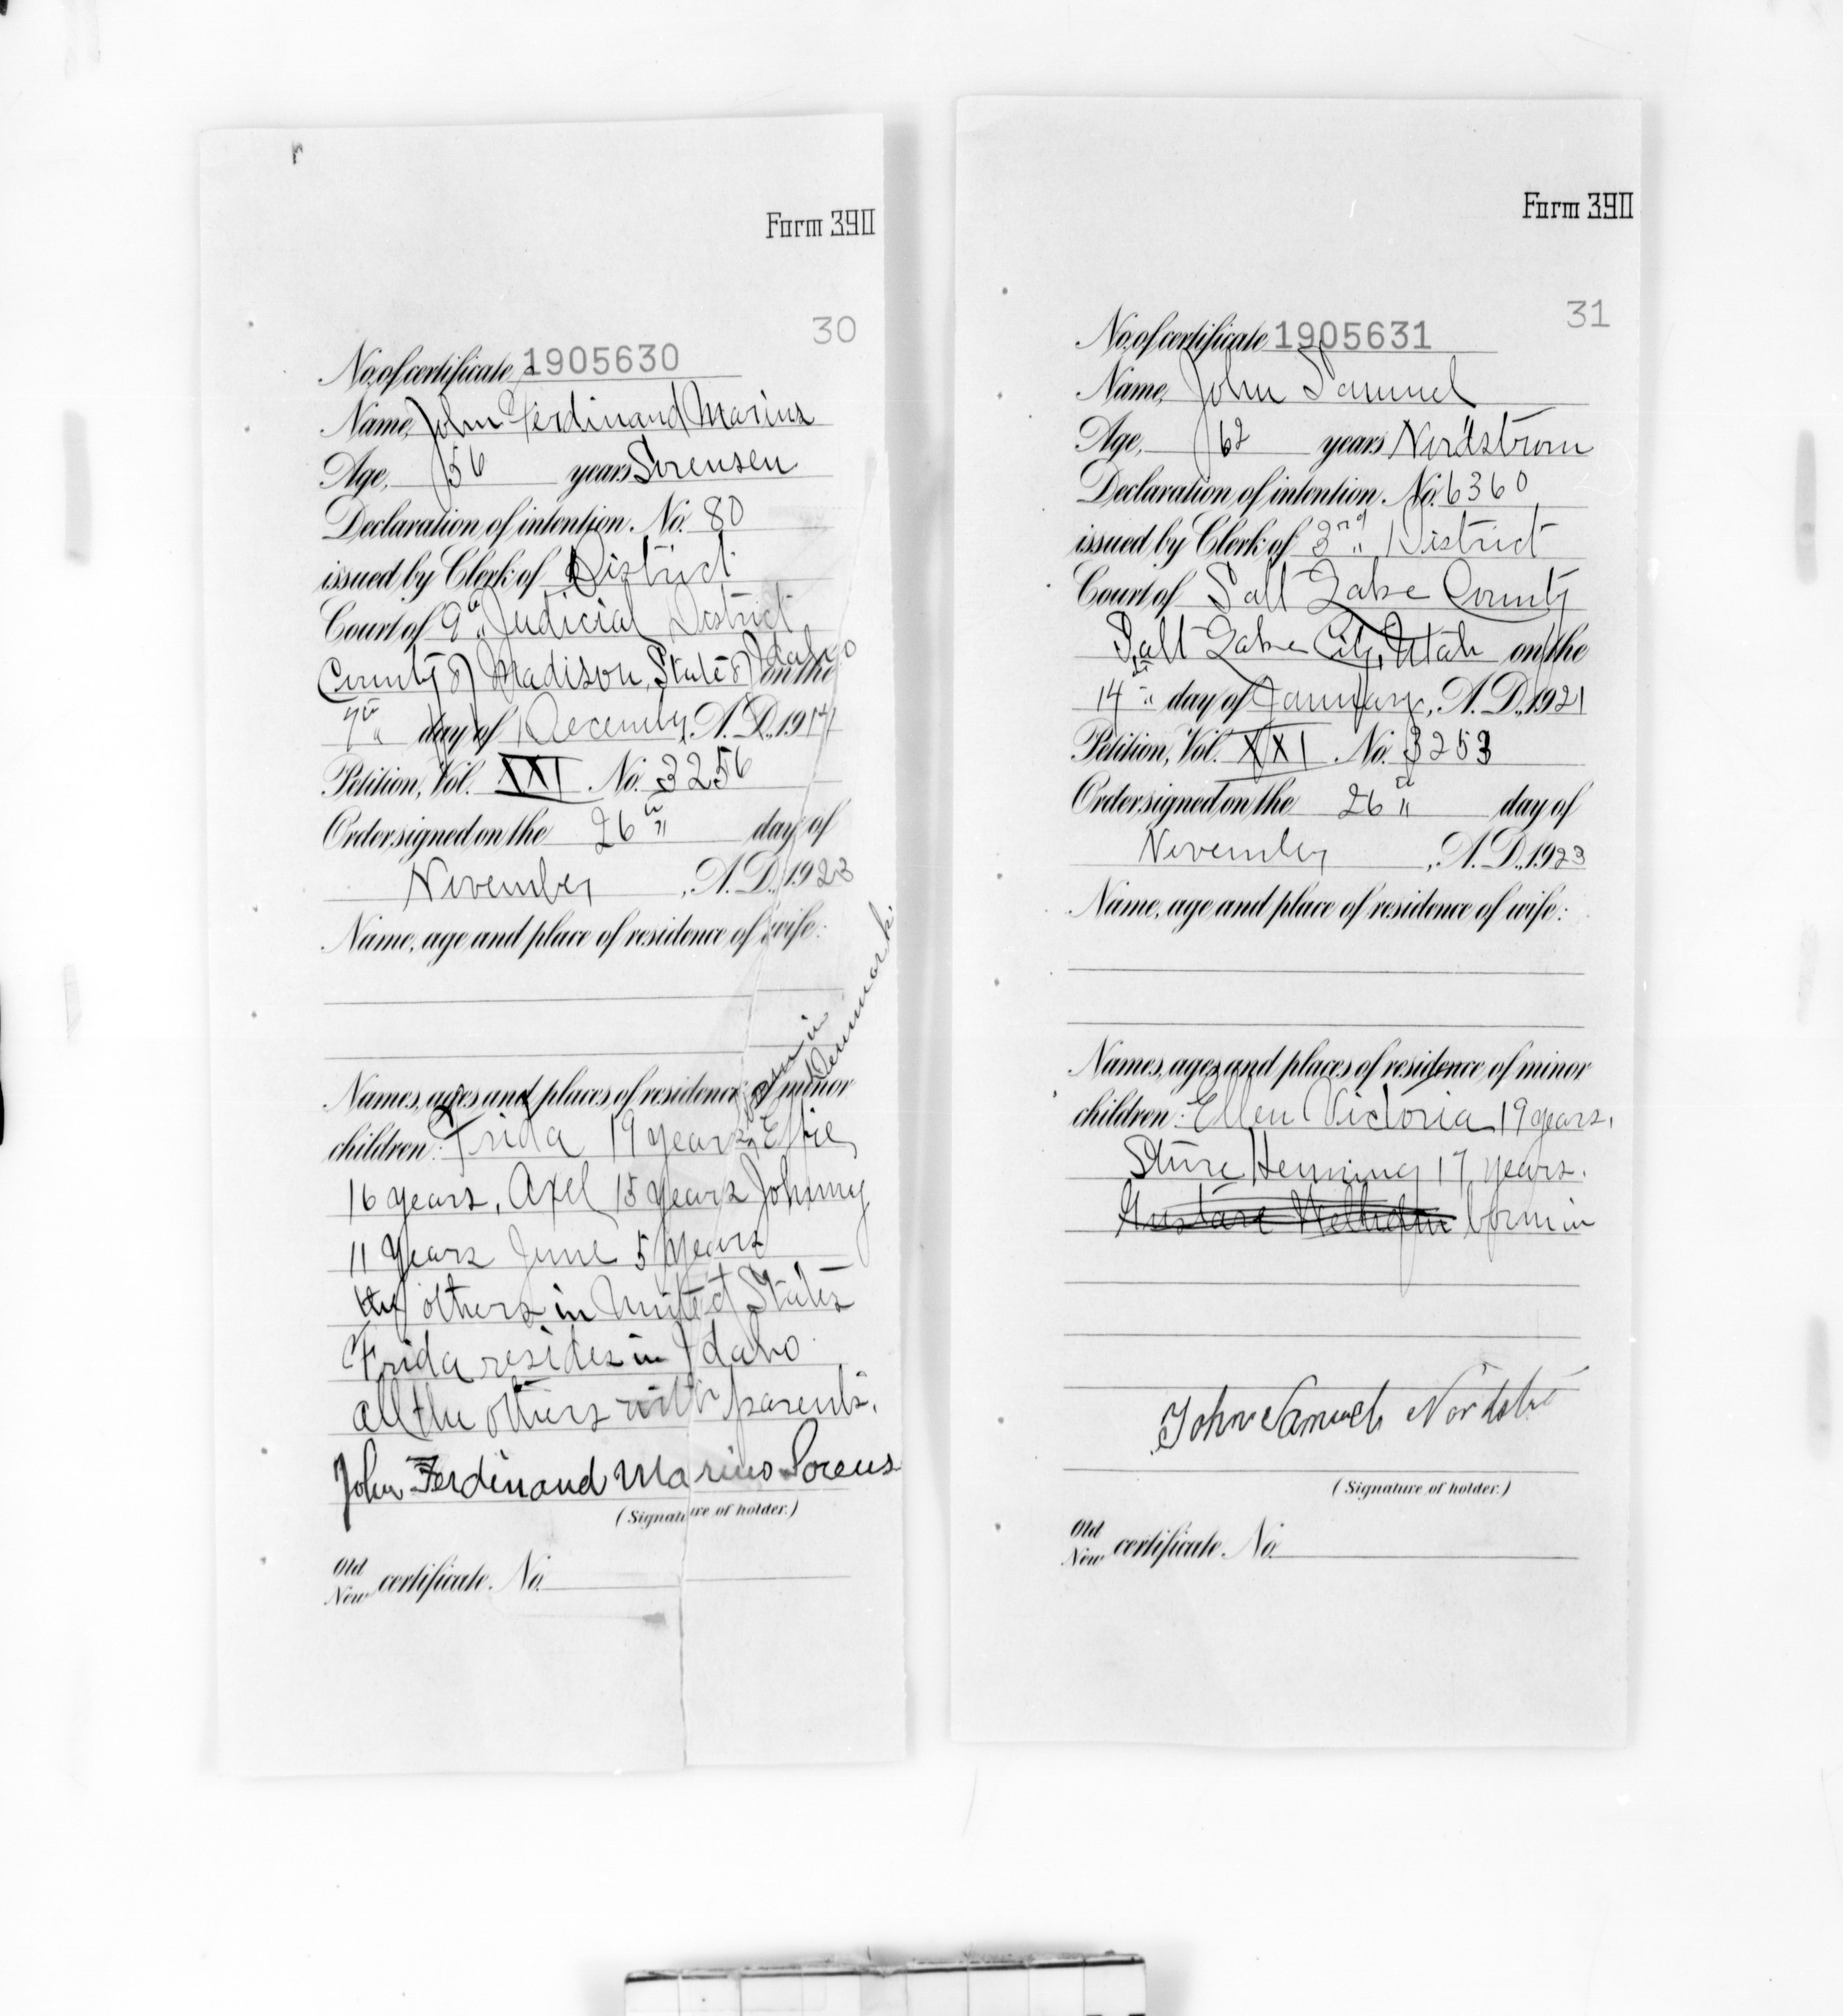 Form 390
30
No. of certificate 1905630
Name, John Ferdinand Marius
Age, 56 years Sorensen
Declaration of intention. No. 80
issued by Clerk of District
Court of 9" Judicial District
County of Madison, State of Idaho on the
7th day of December, A. D., 1914
Petition, Vol. XXI No. 3256
Order signed on the 26th day of
November, A. D., 1923
Name, age and place of residence of wife:
born in
Denmark.
Names, ages and places of residence of minor
children: Frida 19 years, Effie
16 years, Axel 15 years Johnny
11 years June 5 years
others in United States
Frida resides in Idaho
all the others with parents.
John Ferdinand Marino Sorens
(Signature of holder.)
Old
New certificate. No.
Form 390
31
No. of certificate 1905631
Name, John Samuel
Age, 62 years Nordstrom
Declaration of intention. No. 6360
issued by Clerk of 3rd District
Court of Salt Lake County
Salt Lake City, Utah on the
14th day of January, A. D., 1921
Petition, Vol. XXI No. 3253
Order signed on the 26th day of
November, A. D., 1923
Name, age and place of residence of wife:
Names, ages and places of residence of minor
children: Ellen Victoria 19 years,
Sture Henning 17 years.
born in
John Samuel Nordst
(Signature of holder.)
Old
New certificate. No.